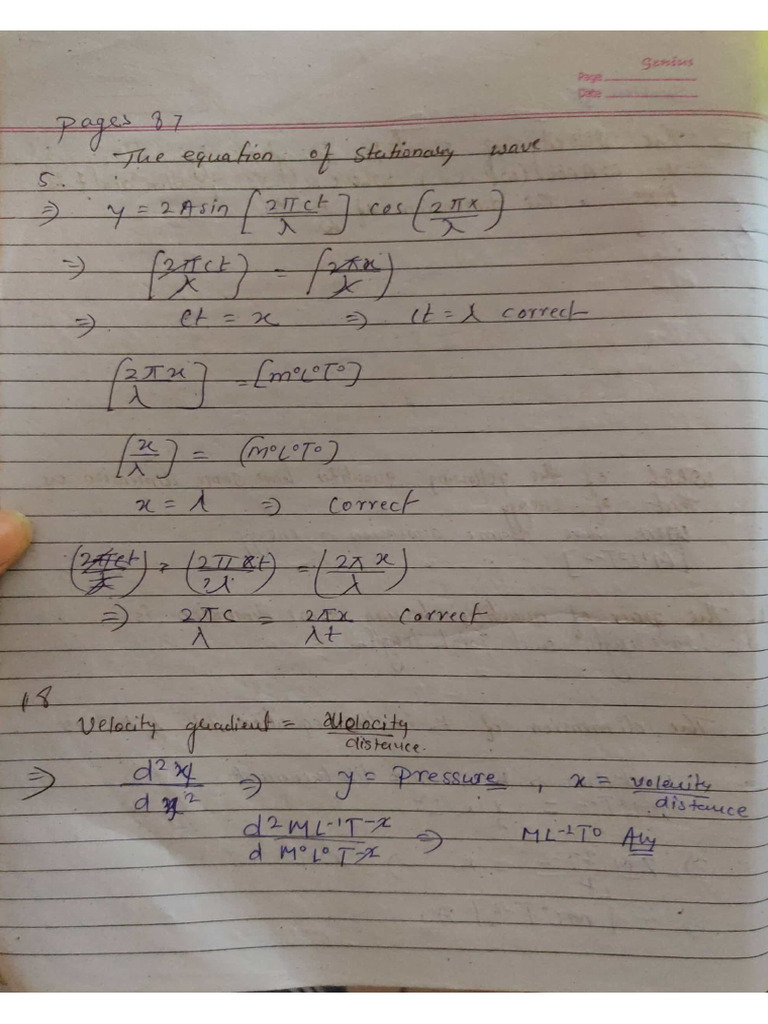 Genius
Page
Date
Pages 87
The equation of stationary wave
5.
⇒ y = 2A sin [2πct/λ] cos (2πx/λ)
⇒ [2πct/λ] = [2πx/λ)
⇒ ct = x ⇒ ct = λ correct
[2πx/λ] = [M⁰L⁰T⁰]
[x/λ] = (M⁰L⁰T⁰)
x = λ ⇒ correct
= (2πct/λ) = (2πx/λ)
⇒ 2πc/λ = 2πx/λt correct
18
Velocity gradient = velocity/distance.
⇒ d²y/dx² ⇒ y = Pressure, x = velocity/distance
d²ML⁻¹T⁻²/d M⁰L⁰T⁻² ⇒ ML⁻¹T⁰ Ans